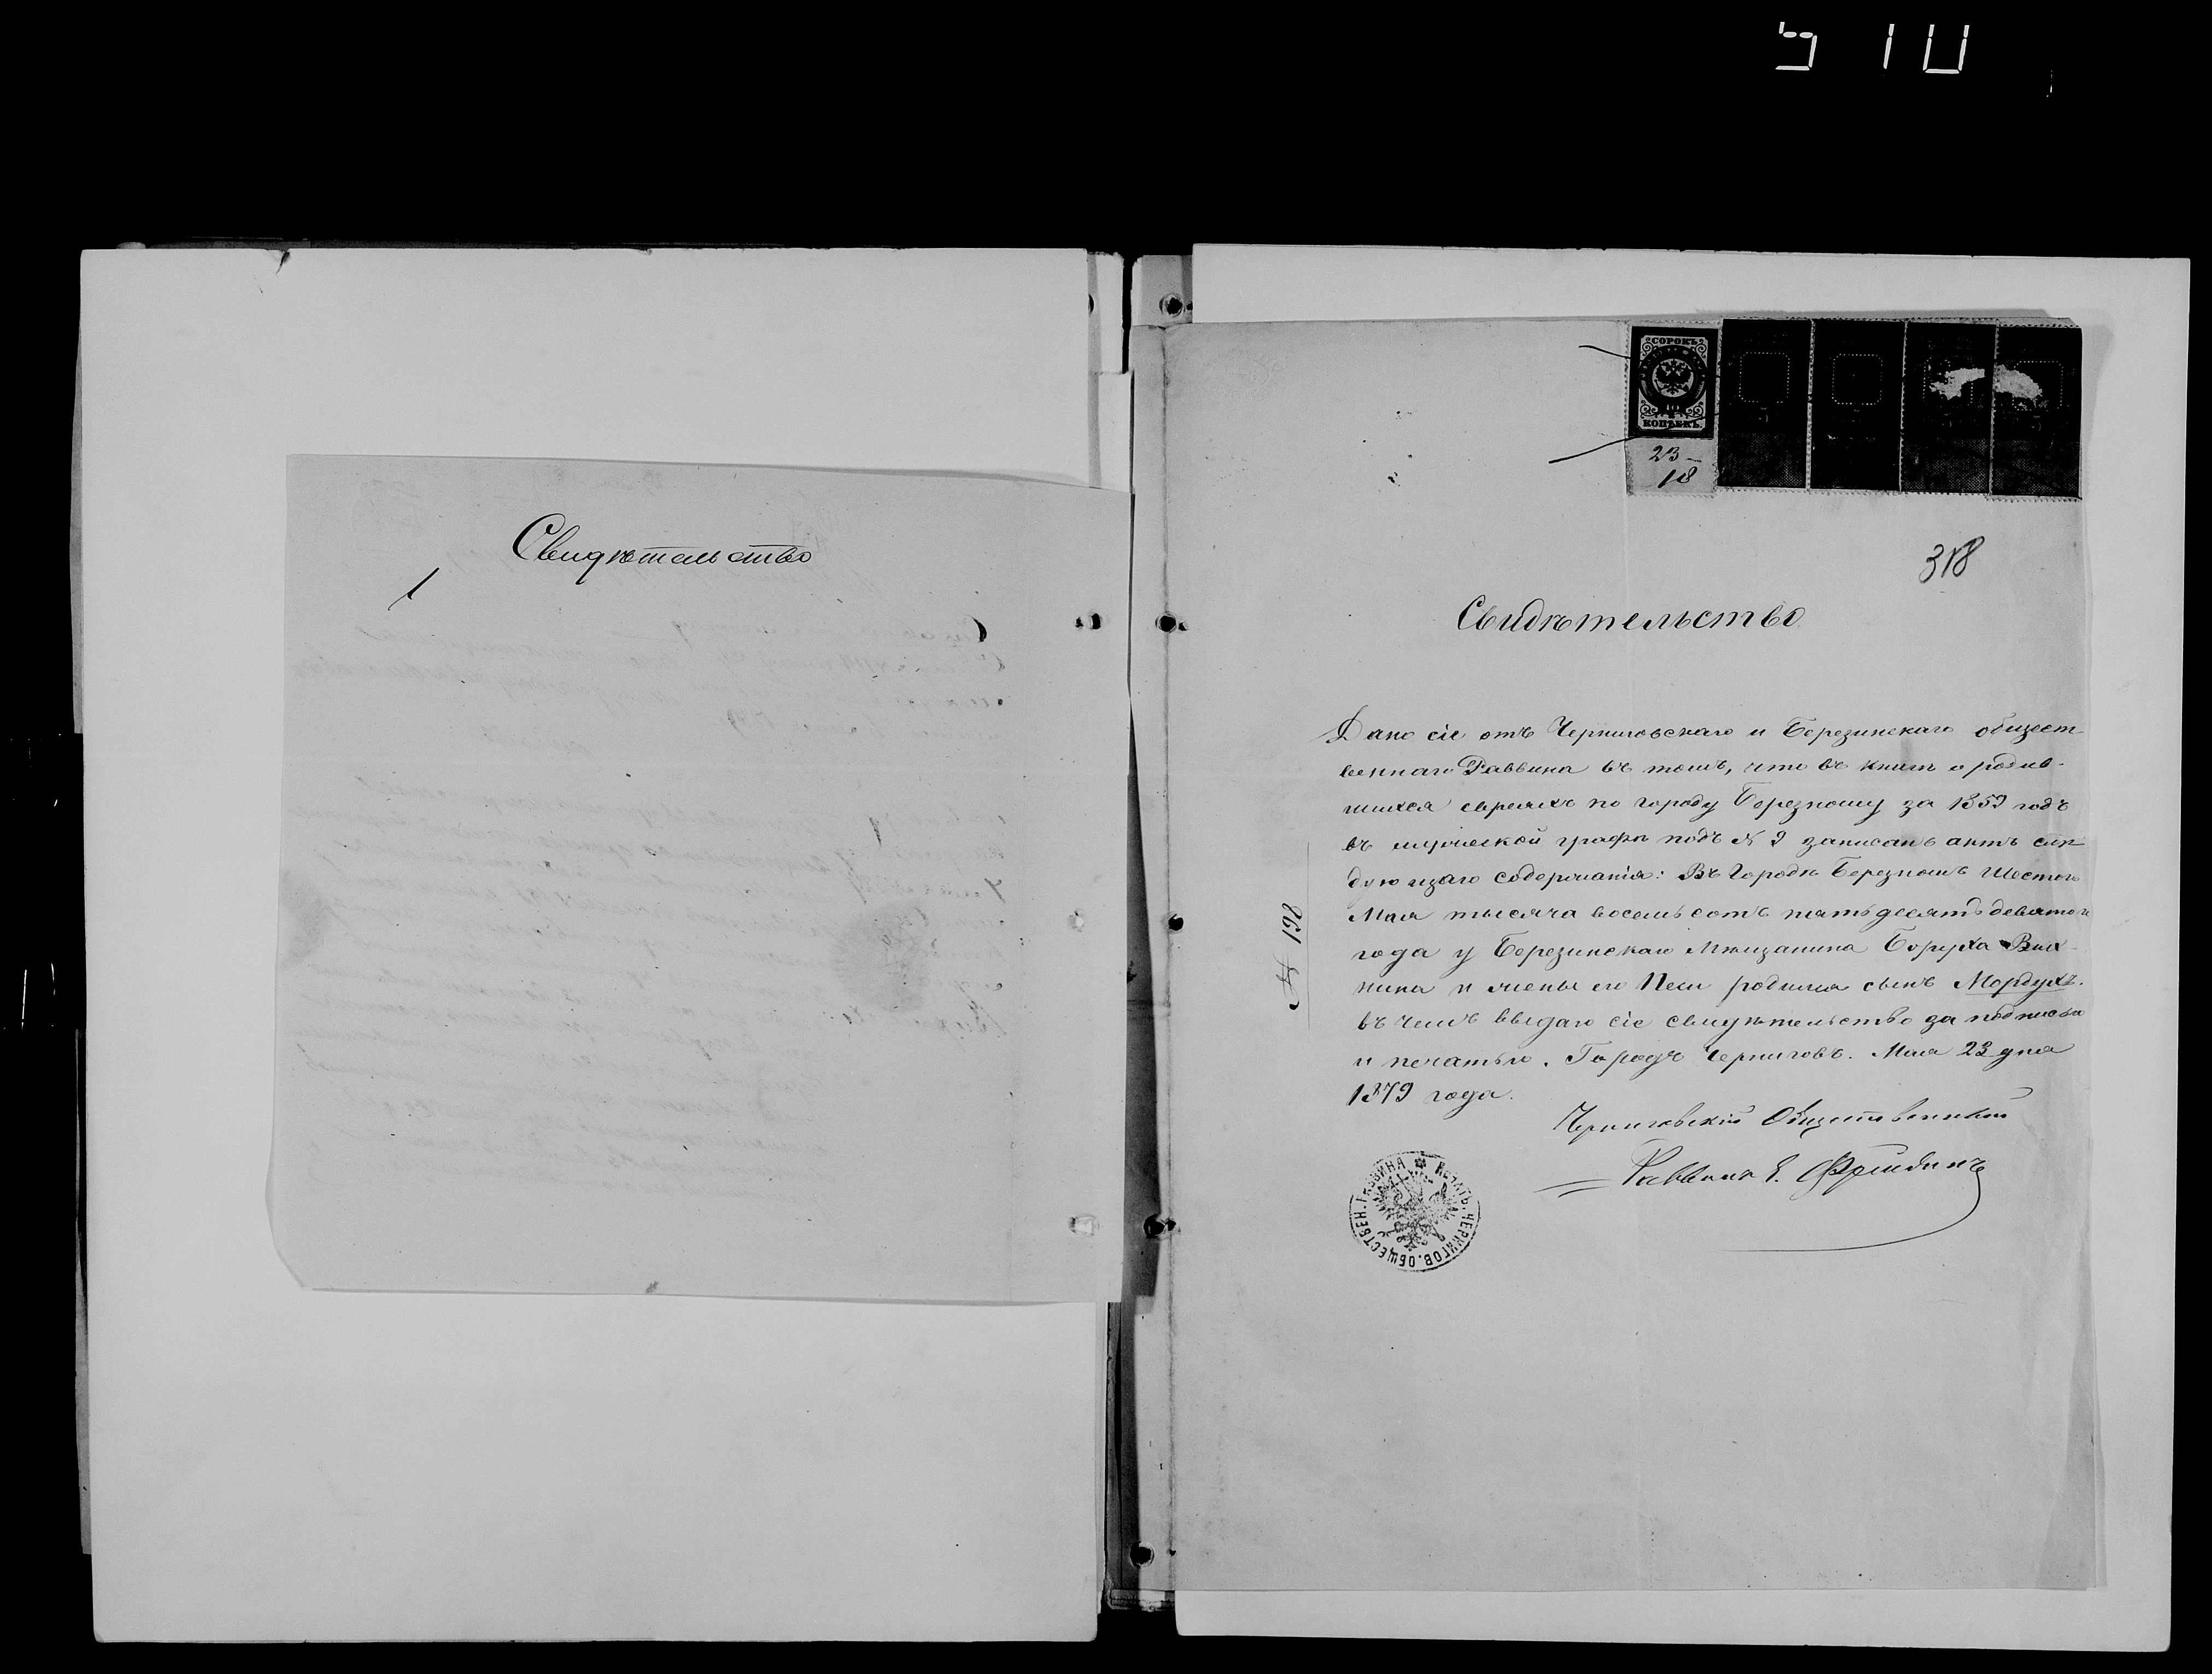 510
Свидѣтельство
1
СОРОКЪ
40
КОПѢЕКЪ
23
18
318
Свидѣтельство
Дано сіе отъ Черниговскаго и Березинскаго общест-
веннаго Раввина въ томъ, что въ книгѣ о родив-
шихся евреяхъ по городу Березному за 1859 годъ
въ мужеской графѣ подъ № 9 записанъ актъ слѣ-
дующаго содержанія: Въ Городѣ Березномъ Шестого
Мая тысяча восемьсотъ пятьдесятъ девятого
года у Березинскаго Мѣщанина Боруха Вих-
нина и жены его Песи родился сынъ Мордухъ.
въ чемъ выдаю сіе свидѣтельство за подписью
и печатью. Городъ Черниговъ. Мая 23 дня
1879 года.
№ 198
Черниговскій Общественный
Раввинъ Е. Фрейдинъ
ПЕЧАТЬ ЧЕРНИГОВ. ОБЩЕСТВЕН. РАВВИНА